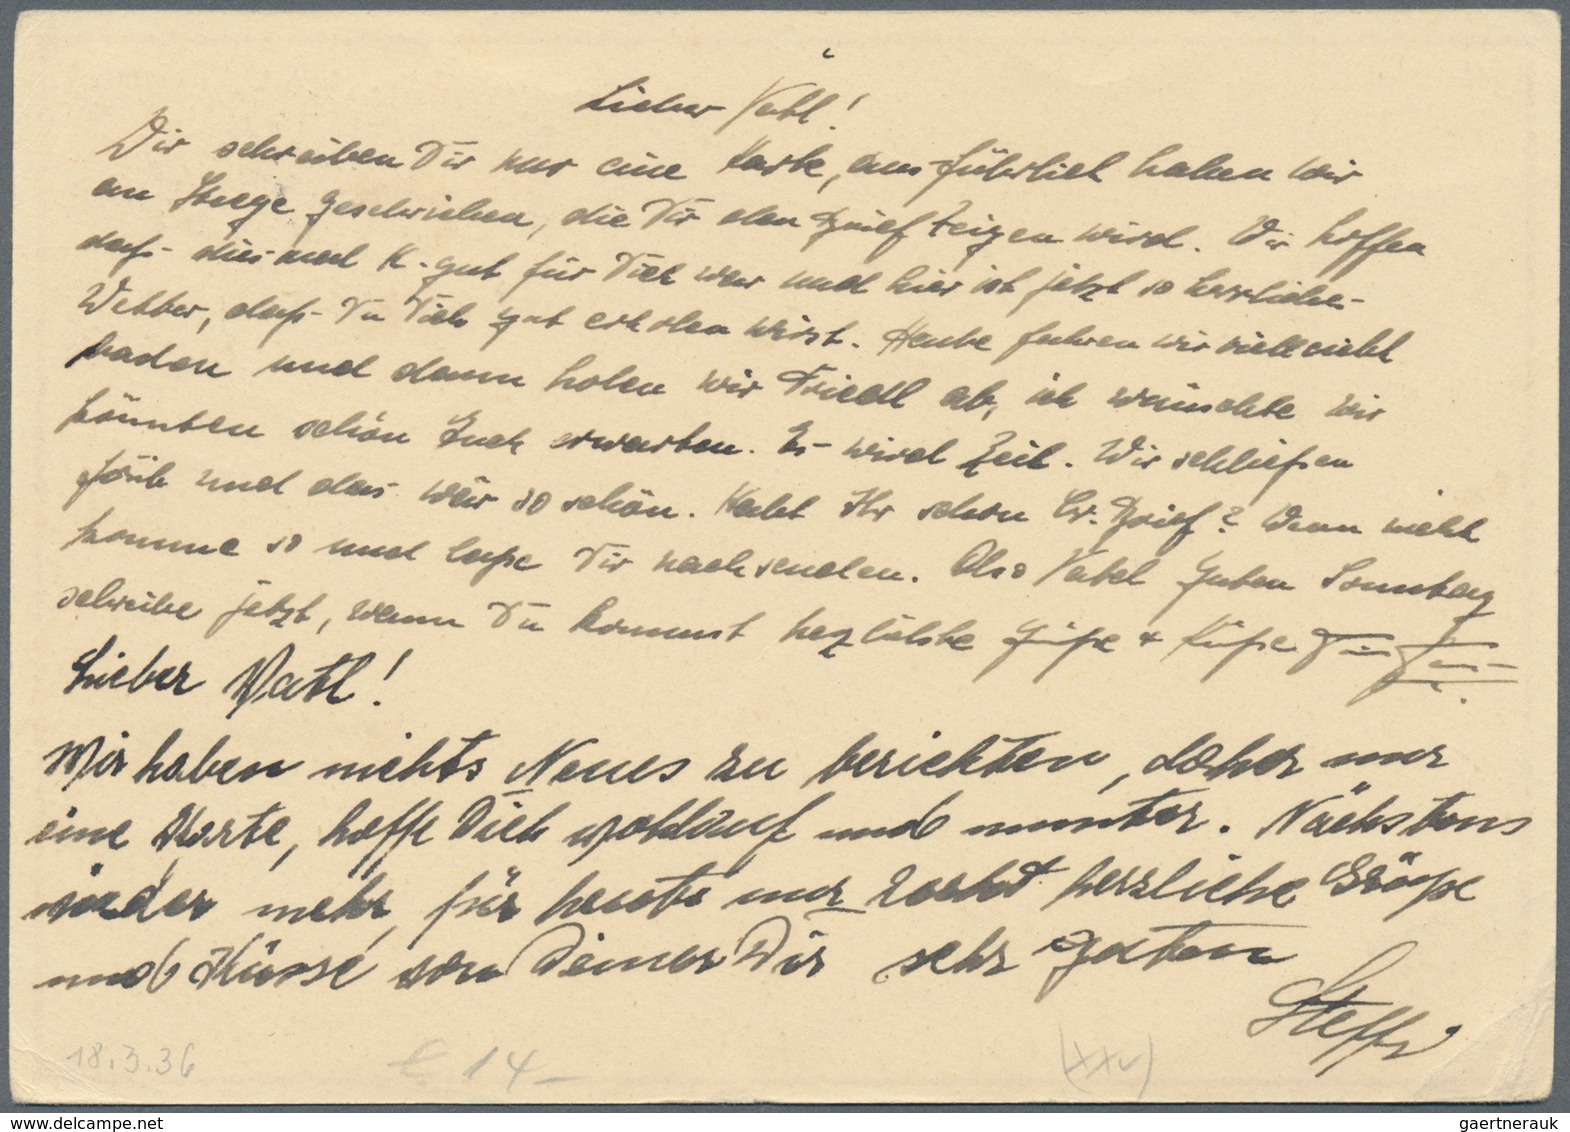 Lieber Vatl!
Wir schreiben Dir nur eine Karte, ausführlich haben wir
an geschrieben, die Dir den Brief zeigen wird. Wir hoffen
daß diesmal K. gut für Dich war und hier ist jetzt so herrliches
Wetter, daß Du Dich gut erholen wirst. Heute fahren wir vielleicht
baden und dann holen wir Friedl ab, ich wünschte wir
könnten schon Euch erwarten. Es wird Zeit. Wir schließen
früh und das wär so schön. Habt Ihr schon Brief? Wenn nicht
komme so und laße Dir nachsenden. Also Vatel guten Sonntag
schreibe jetzt, wann Du kommst herzlichste Grüße + Küße
Lieber Vatl!
Wir haben nichts Neues zu berichten, daher nur
eine Karte, hoffe Dich wohlauf und munter. Nächstens
wieder mehr, für heute nur recht herzliche Grüße
und Küsse von Deiner Dir sehr guten
Steffi
18.3.36 € 14- (XXv)
gaertnerauk